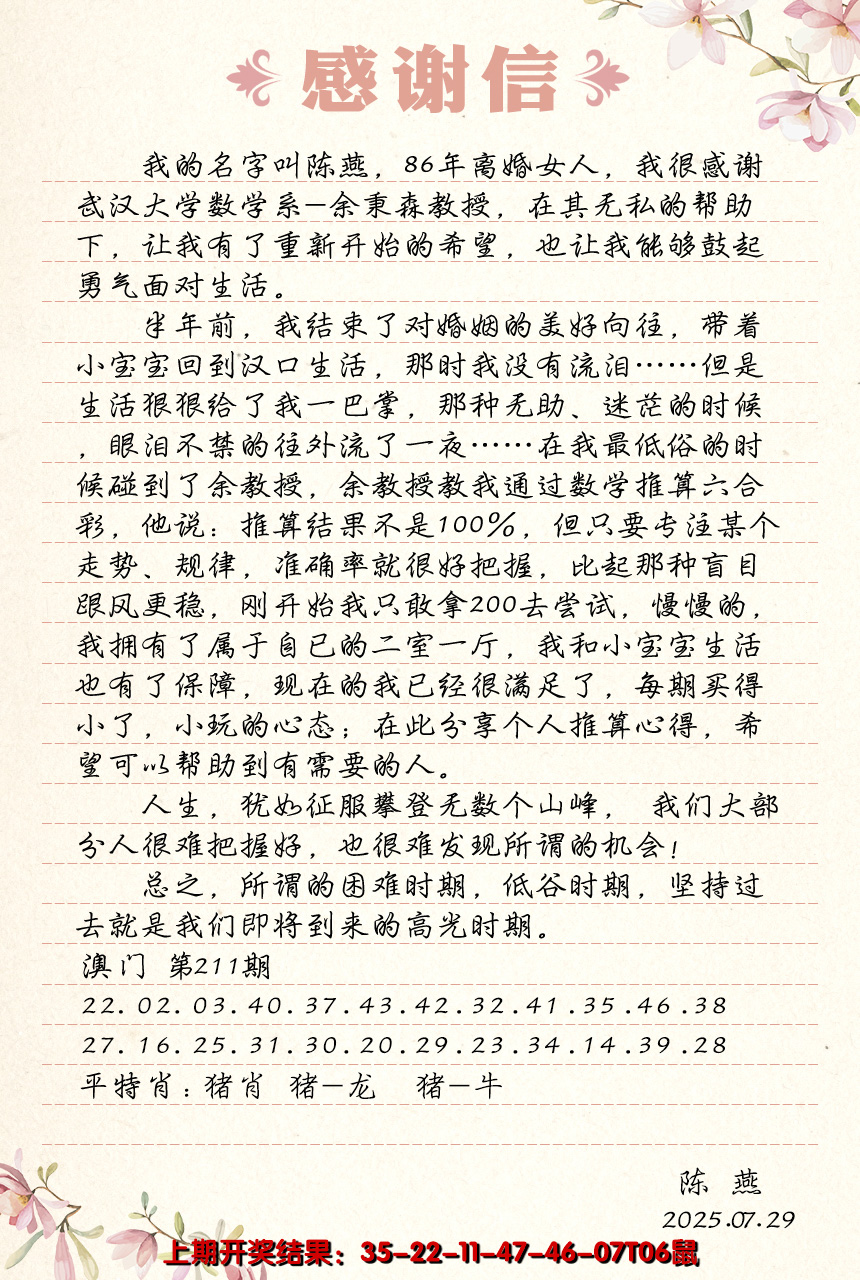 感谢信
我的名字叫陈燕，86年离婚女人，我很感谢
武汉大学数学系-余秉森教授，在其无私的帮助
下，让我有了重新开始的希望，也让我能够鼓起
勇气面对生活。
半年前，我结束了对婚姻的美好向往，带着
小宝宝回到汉口生活，那时我没有流泪……但是
生活狠狠给了我一巴掌，那种无助、迷茫的时候
，眼泪不禁的往外流了一夜……在我最低俗的时
候碰到了余教授，余教授教我通过数学推算六合
彩，他说：推算结果不是100%，但只要专注某个
走势、规律，准确率就很好把握，比起那种盲目
跟风更稳，刚开始我只敢拿200去尝试，慢慢的，
我拥有了属于自已的二室一厅，我和小宝宝生活
也有了保障，现在的我已经很满足了，每期买得
小了，小玩的心态；在此分享个人推算心得，希
望可以帮助到有需要的人。
人生，犹如征服攀登无数个山峰， 我们大部
分人很难把握好，也很难发现所谓的机会！
总之，所谓的困难时期，低谷时期，坚持过
去就是我们即将到来的高光时期。
澳门 第211期
22.02.03.40.37.43.42.32.41.35.46.38
27.16.25.31.30.20.29.23.34.14.39.28
平特肖：猪肖 猪-龙 猪-牛
陈 燕
2025.07.29
上期开奖结果：35-22-11-47-46-07T06鼠